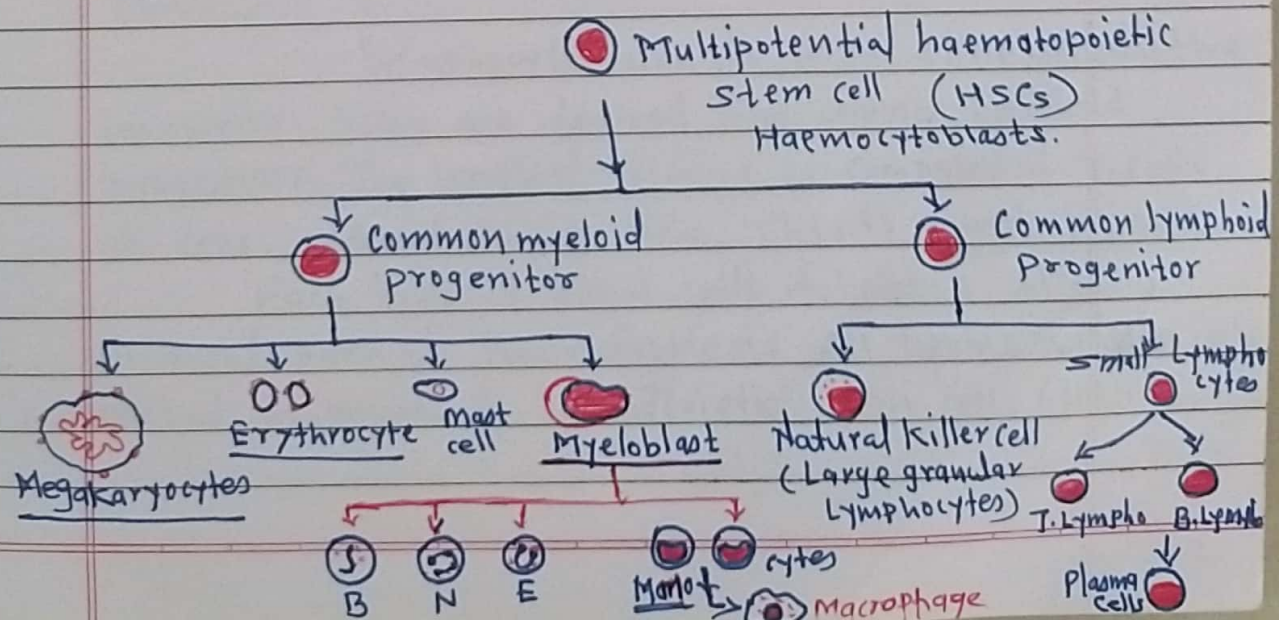 Multipotential haematopoietic
stem cell (HSCs)
Haemocytoblasts.
Common myeloid
progenitor
Common lymphoid
Progenitor
Megakaryocytes
Erythrocyte
Mast
cell
Myeloblast
Natural Killer cell
(Large granular
Lymphocytes)
Small Lympho
cytes
T. Lympho
B. Lymph
B
N
E
Mono
cytes
Macrophage
Plasma
Cells